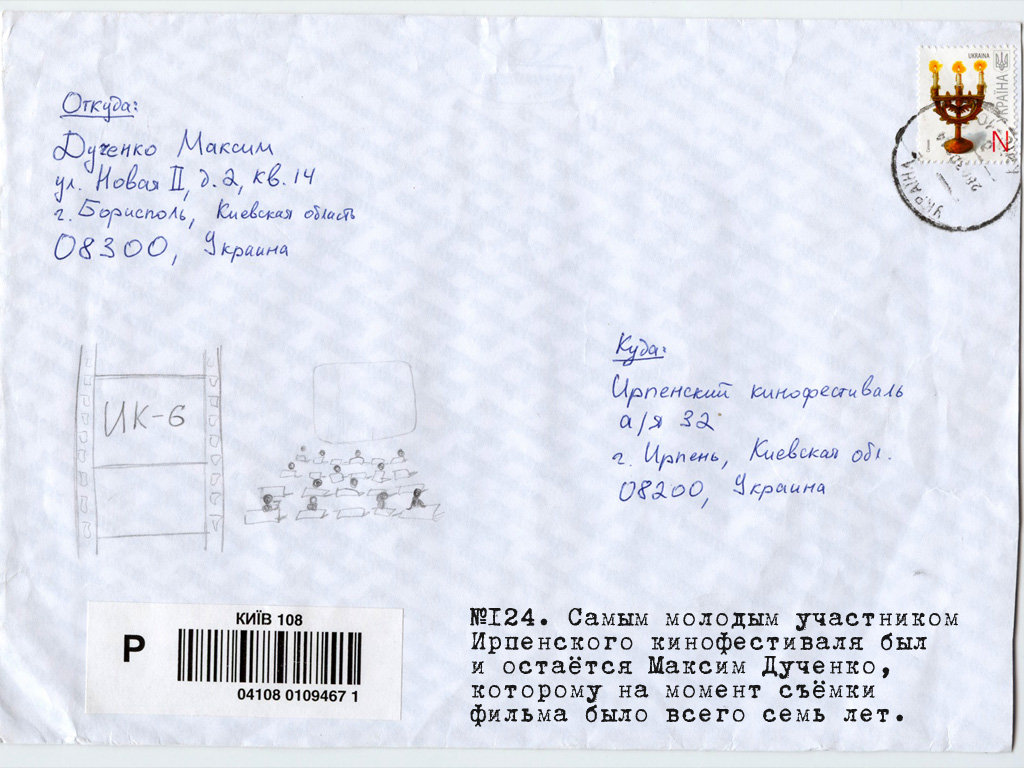 Откуда:
Дученко Максим
ул. Новая II, д. 2, кв. 14
г. Борисполь, Киевская область
08300, Украина
UKRAINA
УКРАЇНА
N
УКРАЇНА
Куда:
Ирпенский кинофестиваль
а/я 32
г. Ирпень, Киевская обл.
08200, Украина
ИК-6
КИЇВ 108
P
04108 0109467 1
№I24. Самым молодым участником
Ирпенского кинофестиваля был
и остаётся Максим Дученко,
которому на момент съёмки
фильма было всего семь лет.